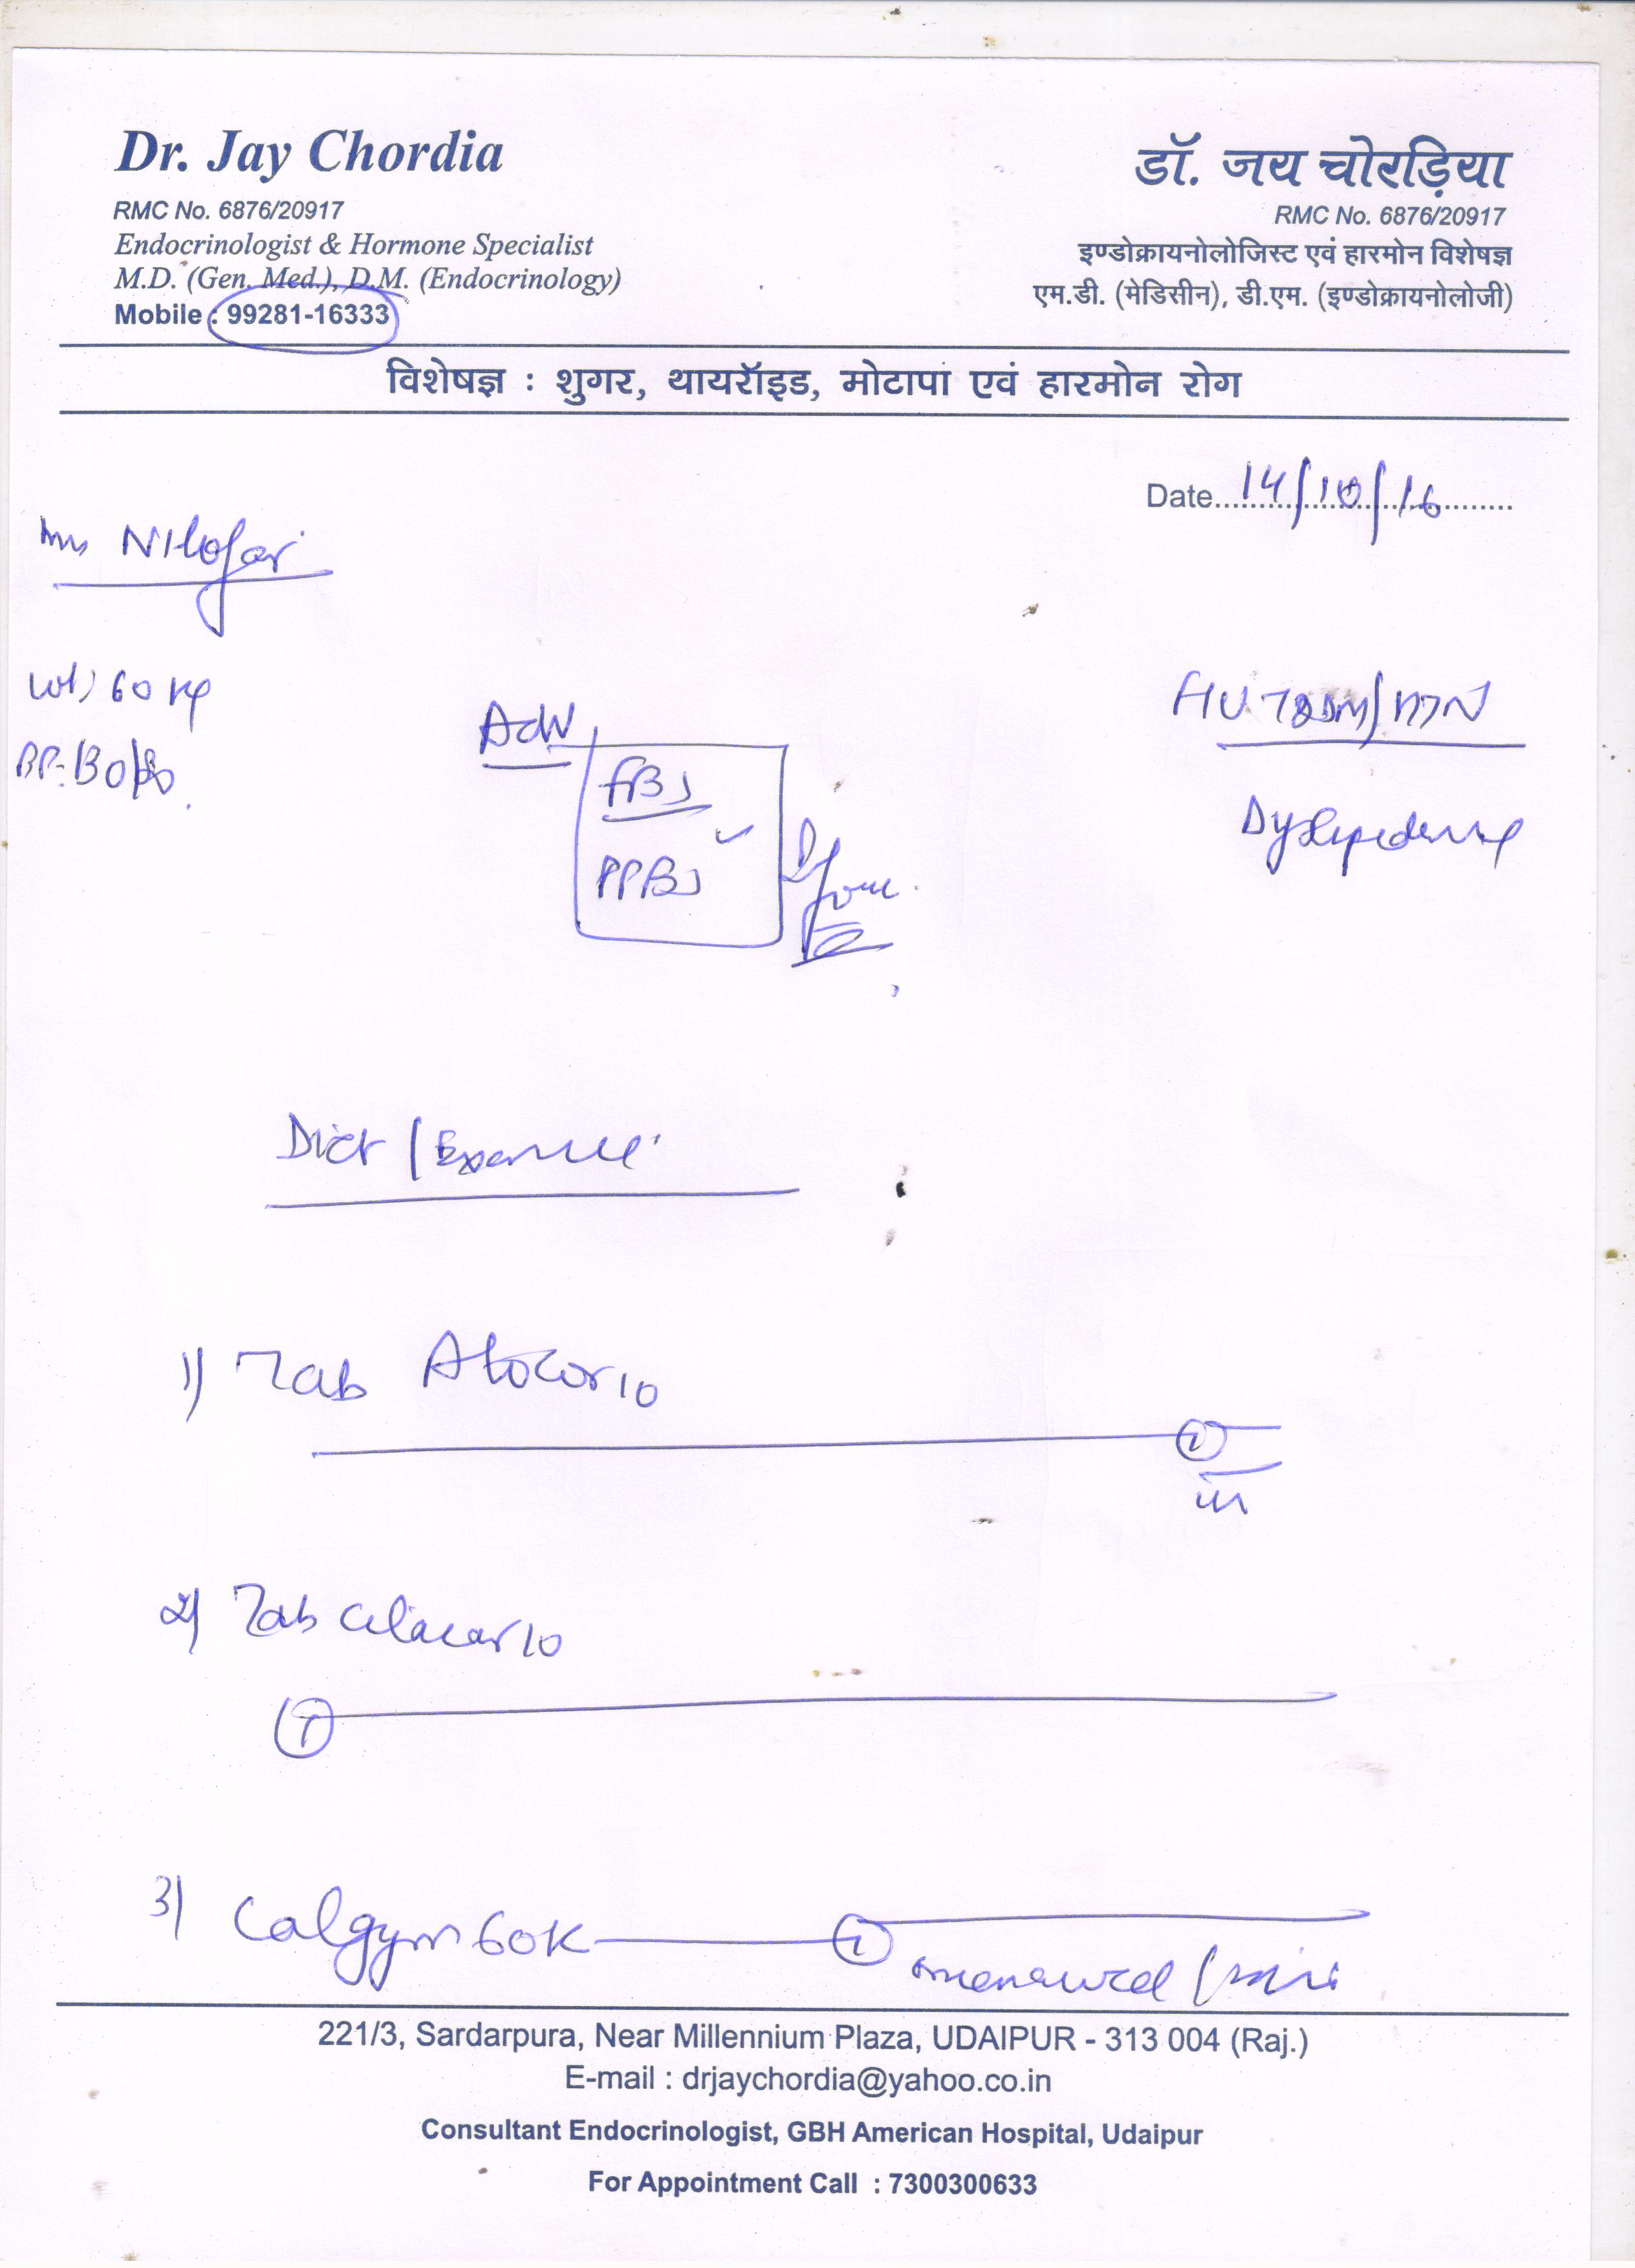 Dr. Jay Chordia
RMC No. 6876/20917
Endocrinologist & Hormone Specialist
M.D. (Gen. Med.), D.M. (Endocrinology)
Mobile : 99281-16333
डॉ. जय चोरड़िया
RMC No. 6876/20917
इण्डोक्रायनोलोजिस्ट एवं हारमोन विशेषज्ञ
एम.डी. (मेडिसीन), डी.एम. (इण्डोक्रायनोलोजी)
विशेषज्ञ : शुगर, थायरॉइड, मोटापा एवं हारमोन रोग
Date 14/10/16
Nilofar
Wt) 60 kg
BP-
Adv
FBS
PPBS
Diet / Exercise
1) Tab Atocor 10
2) Tab Cilacar 10
1
3) 60K
221/3, Sardarpura, Near Millennium Plaza, UDAIPUR - 313 004 (Raj.)
E-mail : drjaychordia@yahoo.co.in
Consultant Endocrinologist, GBH American Hospital, Udaipur
For Appointment Call : 7300300633